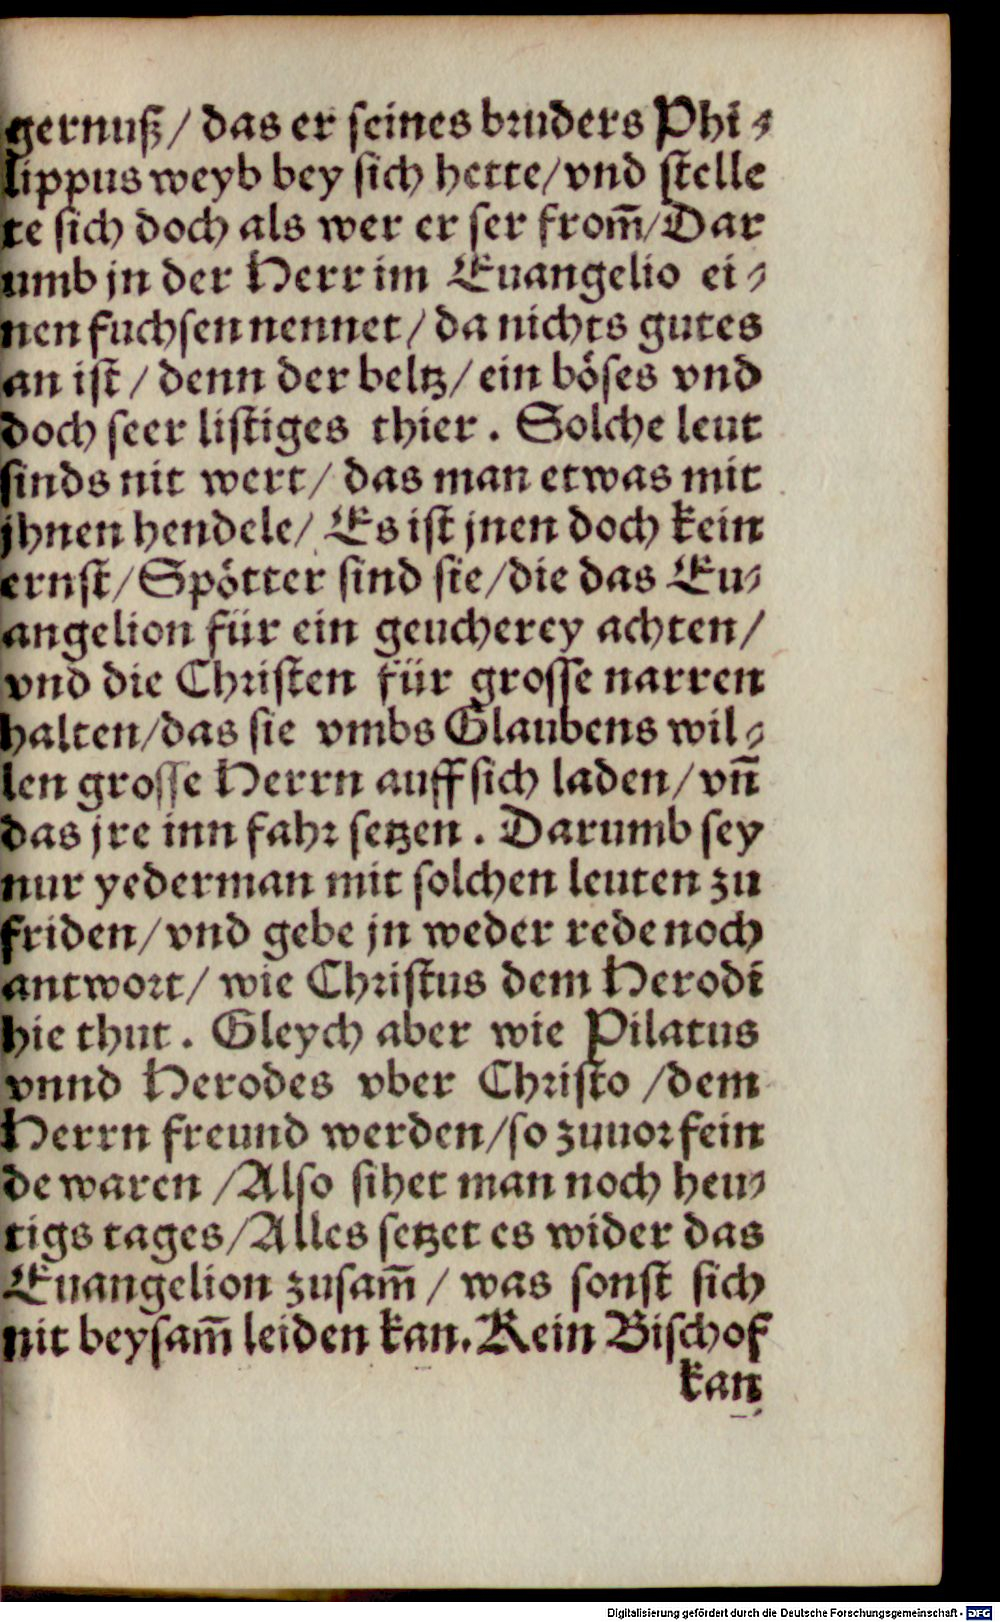 gernuß / das er seines bruders Phi-
lippus weyb bey sich hette / vnd stelle
te sich doch als wer er ser from̄ / Dar
umb jn der Herr im Euangelio ei-
nen fuchsen nennet / da nichts gutes
an ist / denn der beltz / ein böses vnd
doch seer listiges thier . Solche leut
sinds nit wert / das man etwas mit
jhnen hendele / Es ist jnen doch kein
ernst / Spötter sind sie / die das Eu-
angelion für ein geucherey achten /
vnd die Christen für grosse narren
halten / das sie vmbs Glaubens wil-
len grosse Herrn auff sich laden / vn̄
das jre inn fahr setzen . Darumb sey
nur yederman mit solchen leuten zu
friden / vnd gebe jn weder rede noch
antwort / wie Christus dem Herodi
hie thut . Gleych aber wie Pilatus
vnnd Herodes vber Christo / dem
Herrn freund werden / so zuuor fein
de waren / Also sihet man noch heu-
tigs tages / Alles setzet es wider das
Euangelion zusam̄ / was sonst sich
nit beysam̄ leiden kan. Kein Bischof
kan
Digitalisierung gefördert durch die Deutsche Forschungsgemeinschaft - DFG